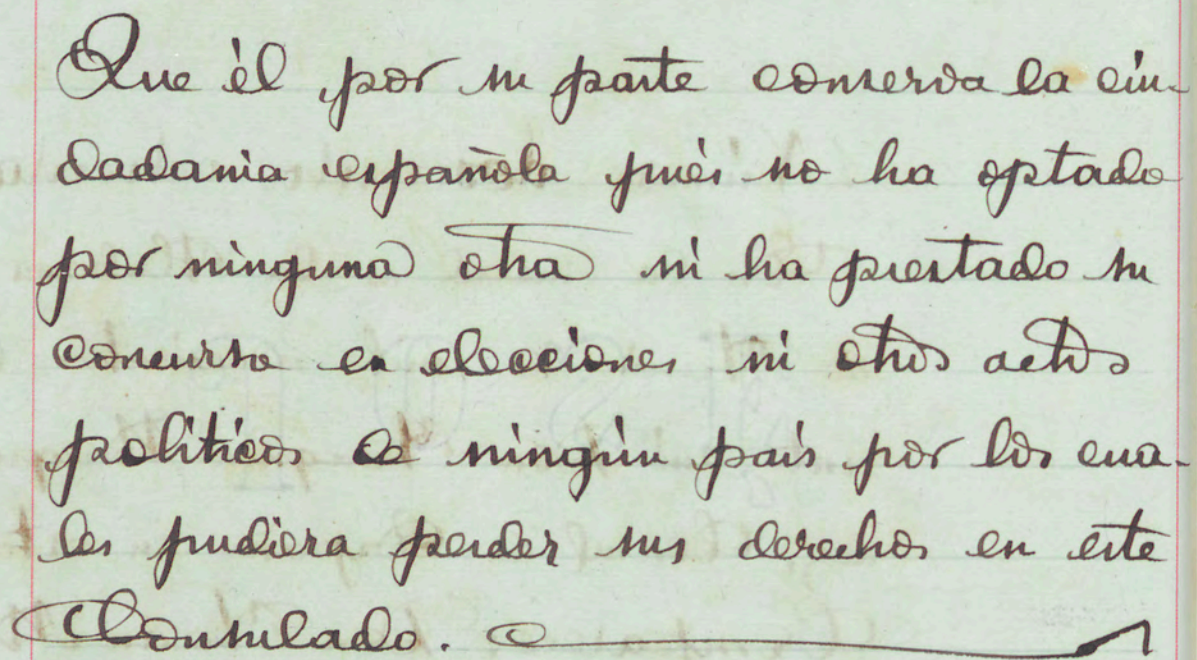 Que él por su parte conserva la ciu-
dadania española pués no ha optado
por ninguna otra ni ha prestado su
concurso en elecciones ni otros actos
politicos de ningún pais por los cua-
les pudiera perder sus derechos en este
Consulado.